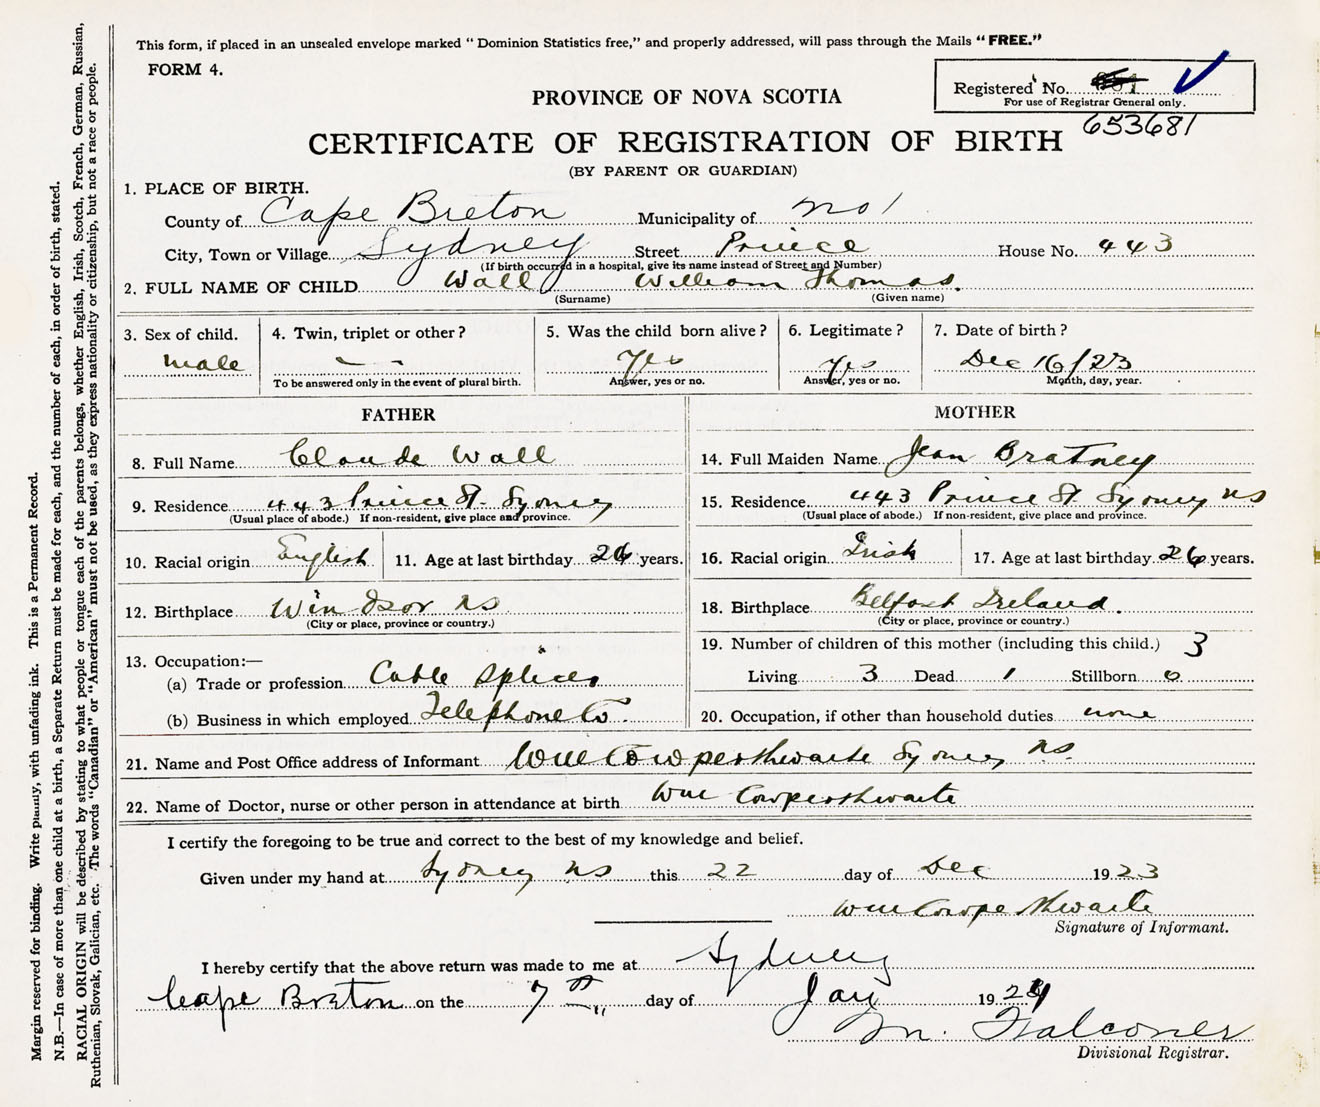 This form, if placed in an unsealed envelope marked “ Dominion Statistics free,” and properly addressed, will pass through the Mails “ FREE.”
FORM 4.
Registered No.
For use of Registrar General only.
653681
PROVINCE OF NOVA SCOTIA
CERTIFICATE OF REGISTRATION OF BIRTH
(BY PARENT OR GUARDIAN)
1. PLACE OF BIRTH.
County of Cape Breton Municipality of No 1
City, Town or Village Sydney Street Prince House No. 443
(If birth occurred in a hospital, give its name instead of Street and Number)
2. FULL NAME OF CHILD Wall William Thomas.
(Surname) (Given name)
3. Sex of child. 4. Twin, triplet or other ? 5. Was the child born alive ? 6. Legitimate ? 7. Date of birth ?
male — — Yes Yes Dec 16/23
To be answered only in the event of plural birth. Answer, yes or no. Answer, yes or no. Month, day, year.
FATHER MOTHER
8. Full Name Claude Wall 14. Full Maiden Name Jean Bratney
9. Residence 443 Prince St. Sydney 15. Residence 443 Prince St Sydney NS
(Usual place of abode.) If non-resident, give place and province. (Usual place of abode.) If non-resident, give place and province.
10. Racial origin English 11. Age at last birthday 26 years. 16. Racial origin Irish 17. Age at last birthday 26 years.
12. Birthplace Windsor NS 18. Birthplace Belfast Ireland.
(City or place, province or country.) (City or place, province or country.)
19. Number of children of this mother (including this child.) 3
13. Occupation:—
(a) Trade or profession Cable Splicer Living 3 Dead 1 Stillborn 0
(b) Business in which employed Telephone Co. 20. Occupation, if other than household duties none
21. Name and Post Office address of Informant Wm Cowperthwaite Sydney NS.
22. Name of Doctor, nurse or other person in attendance at birth Wm Cowperthwaite
I certify the foregoing to be true and correct to the best of my knowledge and belief.
Given under my hand at Sydney NS this 22 day of Dec 1923
Wm Cowperthwaite
Signature of Informant.
I hereby certify that the above return was made to me at Sydney
Cape Breton on the 7th day of Jany 1924
M. Falconer
Divisional Registrar.
Margin reserved for binding. Write plainly, with unfading ink. This is a Permanent Record.
N.B.—In case of more than one child at a birth, a Separate Return must be made for each, and the number of each, in order of birth, stated.
RACIAL ORIGIN will be described by stating to what people or tongue each of the parents belongs, whether English, Irish, Scotch, French, German, Russian,
Ruthenian, Slovak, Galician, etc. The words “Canadian” or “American” must not be used, as they express nationality or citizenship, but not a race or people.